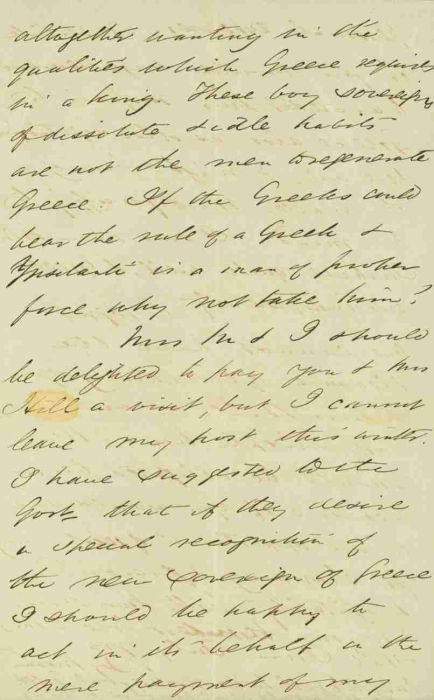 altogether wanting in the
qualities which Greece requires
in a king. These boy sovereigns
of dissolute & idle habits
are not the men to regenerate
Greece. If the Greeks could
bear the rule of a Greek &
Ypsilanti is a man of proper
force why not take him?
Mrs M & I should
be delighted to pay you & Mrs
Hill a visit, but I cannot
leave my post this winter.
I have suggested to the
Govt. that if they desire
a special recognition of
the new sovereign of Greece
I should be happy to
act in its behalf on the
mere payment of my